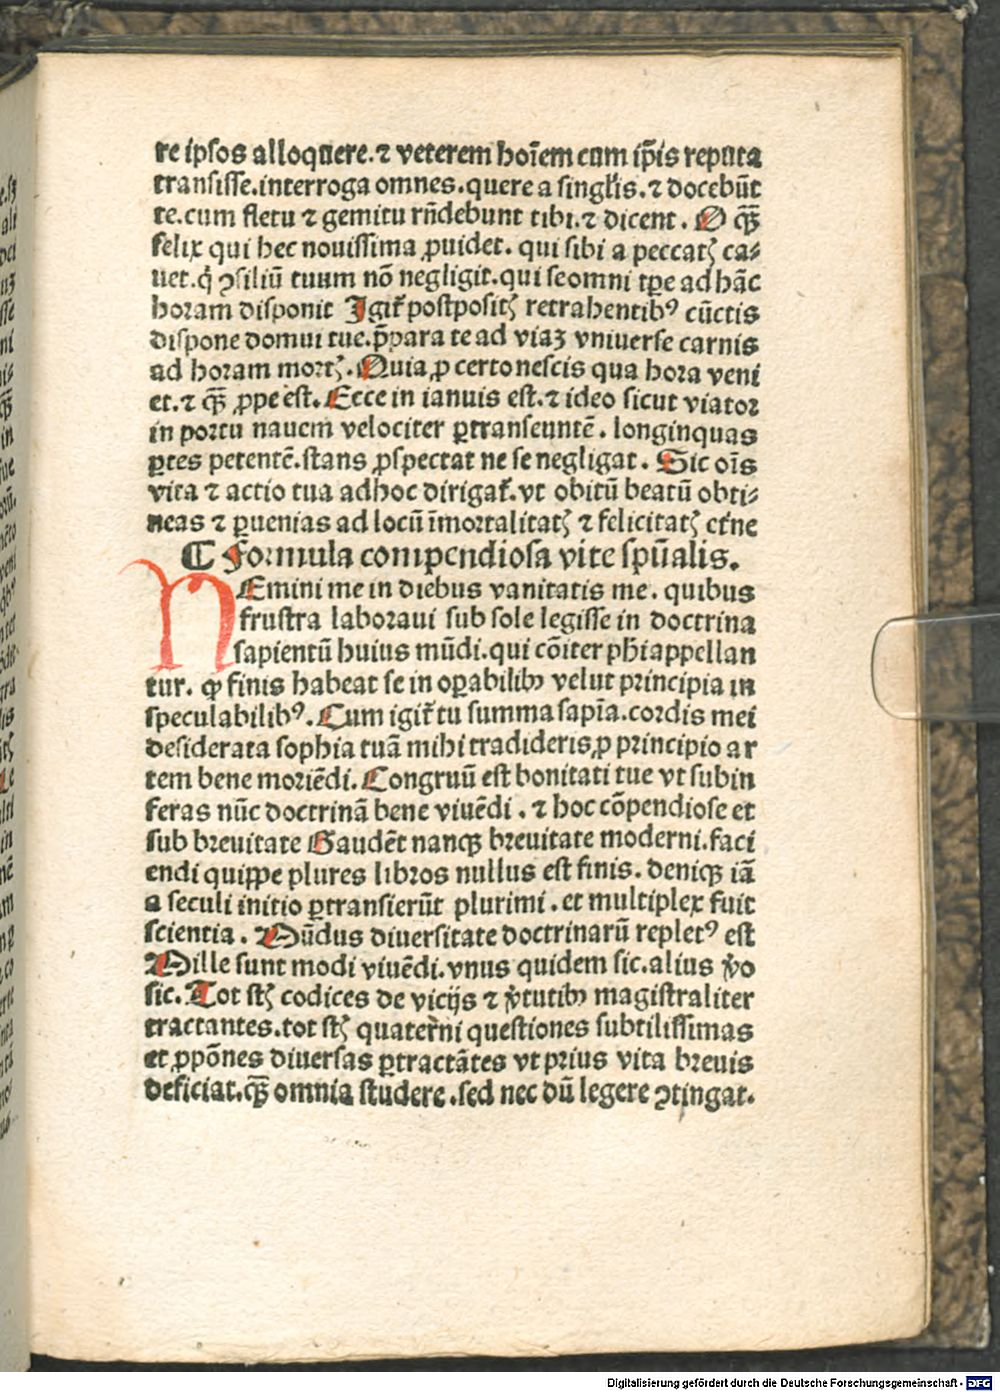 te ipsos alloquere.⁊ veterem hoīem cum ip̄is reputa
transisse.interroga omnes.quere a singl'is.⁊ docebūt
te.cum fletu ⁊ gemitu rn̄debunt tibi.⁊ dicent. O qȝ̄
felix qui hec nouissima ꝓuidet. qui sibi a peccatꝭ ca⸗
uet.q̇ ꝯsiliū tuum nō negligit.qui se omni tꝑe ad hāc
horam disponit Igit᷑ postpositꝭ retrahentibꝰ cūctis
dispone domui tue.p̄para te ad viaꝫ vniuerse carnis
ad horam mortꝭ. Quia ꝓ certo nescis qua hora veni
et.⁊ qȝ̄ ꝓpe est. Ecce in ianuis est.⁊ ideo sicut viator
in portu nauem velociter ꝑtranseuntē. longinquas
ꝑtes petentē.stans ꝓspectat ne se negligat. Sic oīs
vita ⁊ actio tua ad hoc dirigat᷑.vt obitū beatū obti⸗
neas ⁊ ꝑuenias ad locū īmortalitatꝭ ⁊ felicitatꝭ et̄ne
⁋ Formula compendiosa vite spūalis.
NEmini me in diebus vanitatis me. quibus
frustra laboraui sub sole legisse in doctrina
sapientū huius mūdi.qui cōiter ph̄i appellan
tur. ꝙ finis habeat se in oꝑabilibꝫ velut principia in
speculabilibꝰ. Cum igit᷑ tu summa sapīa.cordis mei
desiderata sophia tuā mihi tradideris ꝓ principio ar
tem bene moriēdi. Congruū est bonitati tue vt subin
feras nūc doctrinā bene viuēdi. ⁊ hoc cōpendiose et
sub breuitate Gaudēt nanqꝫ breuitate moderni.faci
endi quippe plures libros nullus est finis. deniqꝫ iā
a seculi initio ꝑtransierūt plurimi. et multiplex fuit
scientia. Mūdus diuersitate doctrinarū repletꝰ est
Mille sunt modi viuēdi.vnus quidem sic.alius v̊o
sic. Tot sꝭt codices de vicijs ⁊ v̊tutibꝫ magistraliter
tractantes.tot sꝭt quaterni questiones subtilissimas
et ꝓpōnes diuersas ꝑtractātes vt prius vita breuis
deficiat.qȝ̄ omnia studere.sed nec dū legere ꝯtingat.
Digitalisierung gefördert durch die Deutsche Forschungsgemeinschaft - DFG